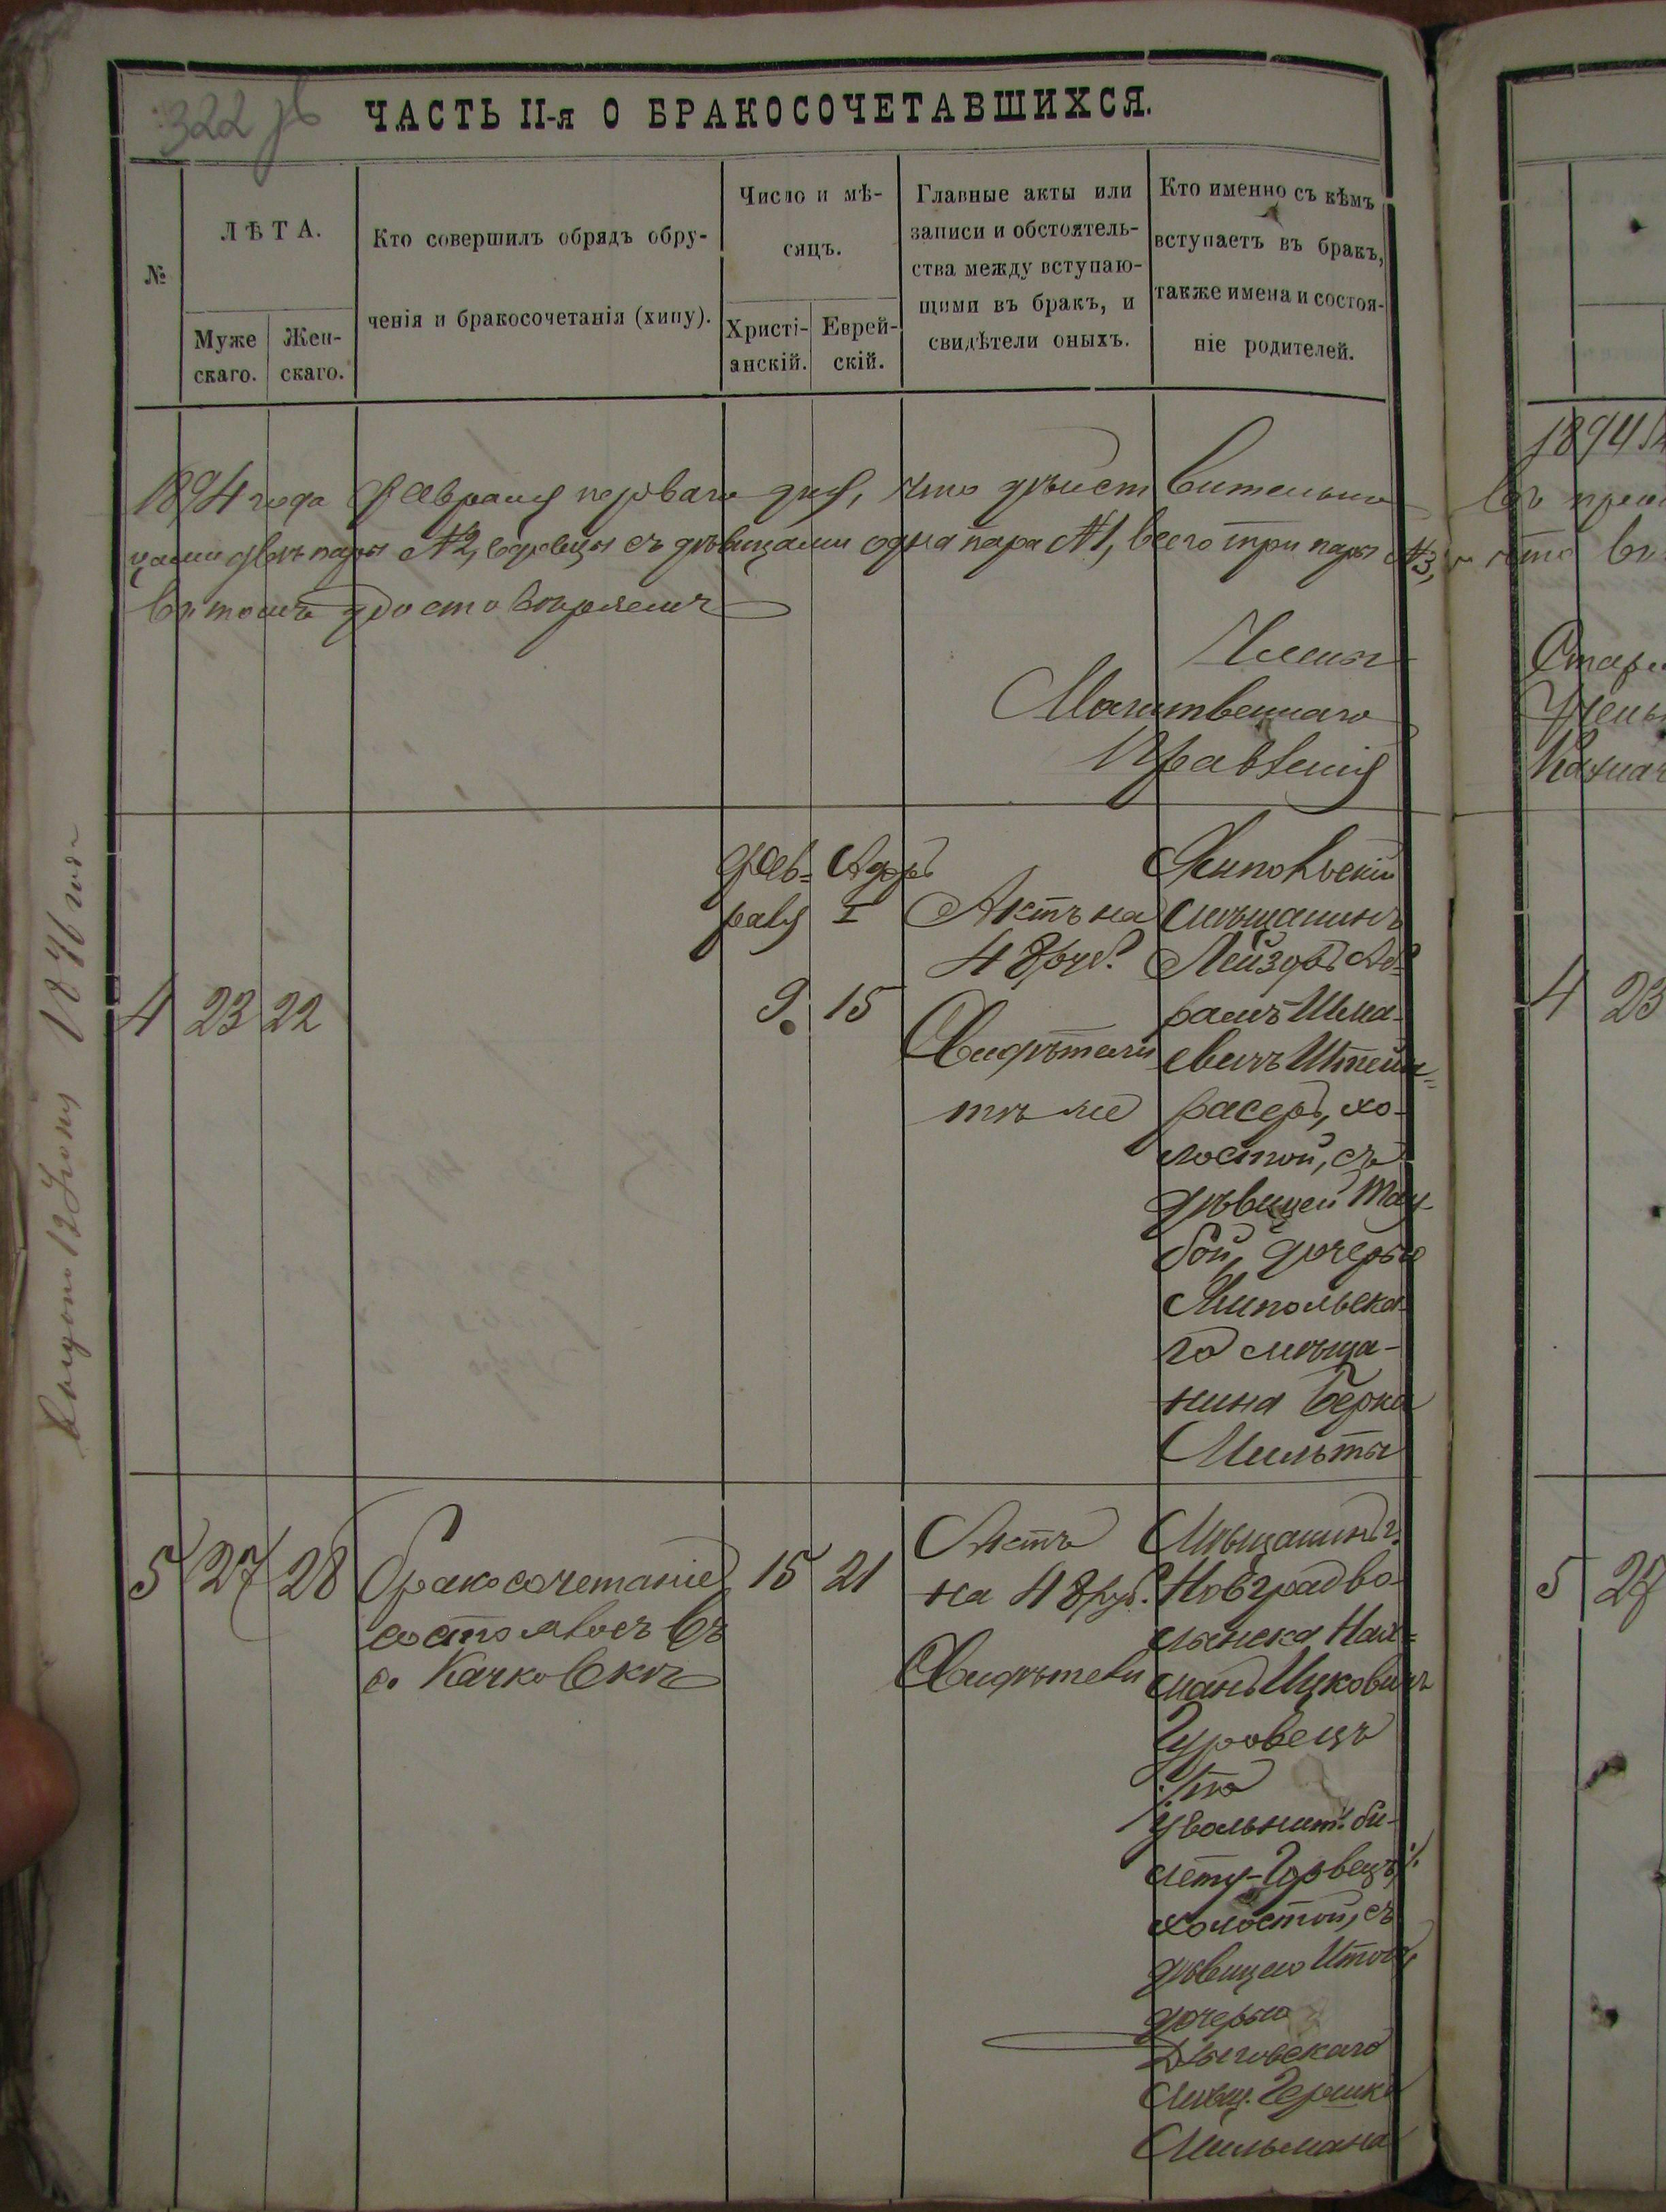 322 
ЧАСТЬ II-я О БРАКОСОЧЕТАВШИХСЯ.
№
ЛѢТА.
Муже
скаго.
Жен-
скаго.
Кто совершилъ обрядъ обру-
ченія и бракосочетанія (хипу).
Число и мѣ-
сяцъ.
Христі-
анскій.
Еврей-
скій.
Главные акты или
записи и обстоятель-
ства между вступаю-
щими въ бракъ, и
свидѣтели оныхъ.
Кто именно съ кѣмъ
вступаетъ въ бракъ,
также имена и состоя-
ніе родителей.
1894 года Февраля перваго дня, что дѣйствительно
цами двѣ пары №2, вдовцы съ дѣвицами одна пара №1, всего три пары №3,
въ томъ удостовѣряемъ
Члены
Молитвеннаго
Правленія
4 23 22
Фев-
раля
9.
Адаръ
I
15
Актъ на
48 руб.
Свидѣтели
тѣ же
мѣщанинъ
Лейзоръ Аб-
рамъ Шма-
евичъ Штейн-
расеръ, хо-
лостой, съ
дѣвицей Тау-
бой, дочерью
го мѣща-
нина Берка
5 27 28
Бракосочетаніе
состоялось въ
с. Качковкѣ
15 21
Актъ
на 48 руб.
Свидѣтели
Мѣщанинъ г.
Новградво-
лынска Нах-
манъ Ицковичъ
Гуровецъ
увольнит. би-
лету-Горвецъ
холостой, съ
дѣвицею
дочерью
мѣщ. Гершка
Мильмана
1894
4 23
5 27